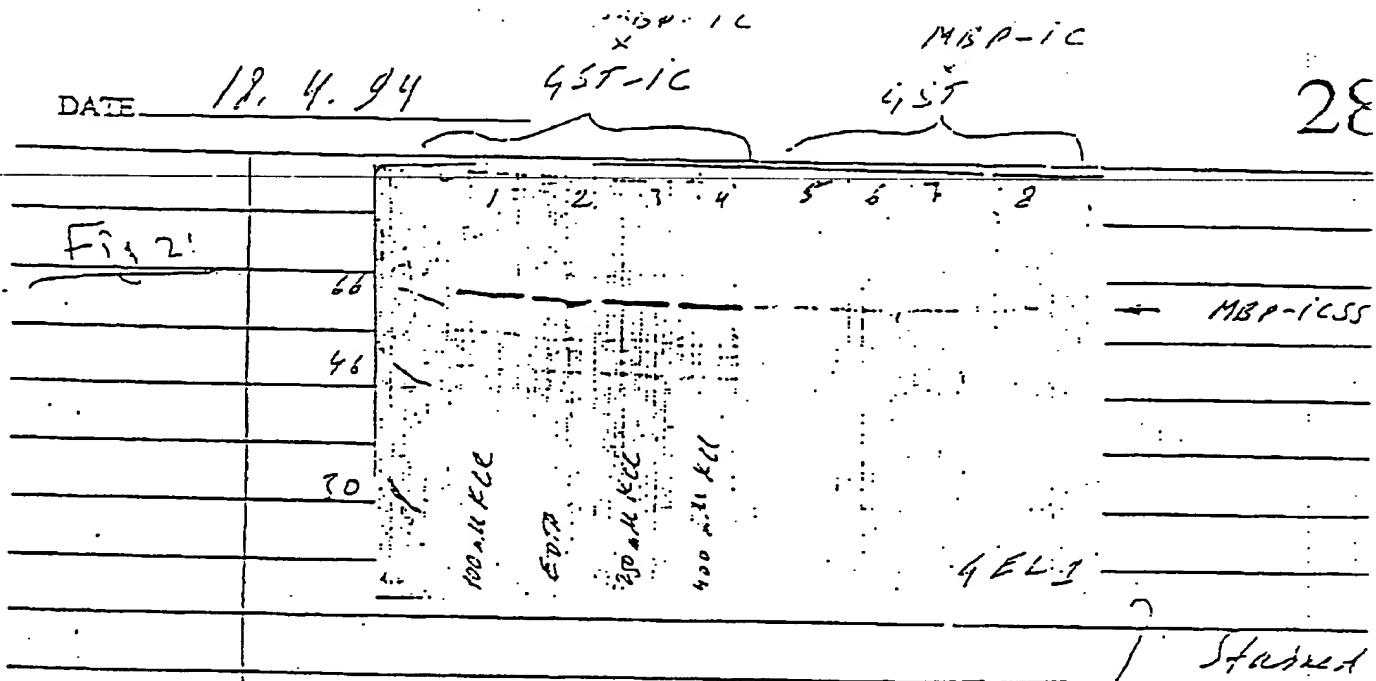 MBP-IC
x
GST-IC
MBP-IC
x
GST
DATE 18. 4. 94
28
1 2 3 4 5 6 7 8
Fig 2!
66
MBP-ICSS
46
30
100 mM KCl
EDTA
250 mM KCl
400 mM KCl
GEL 1
Stained